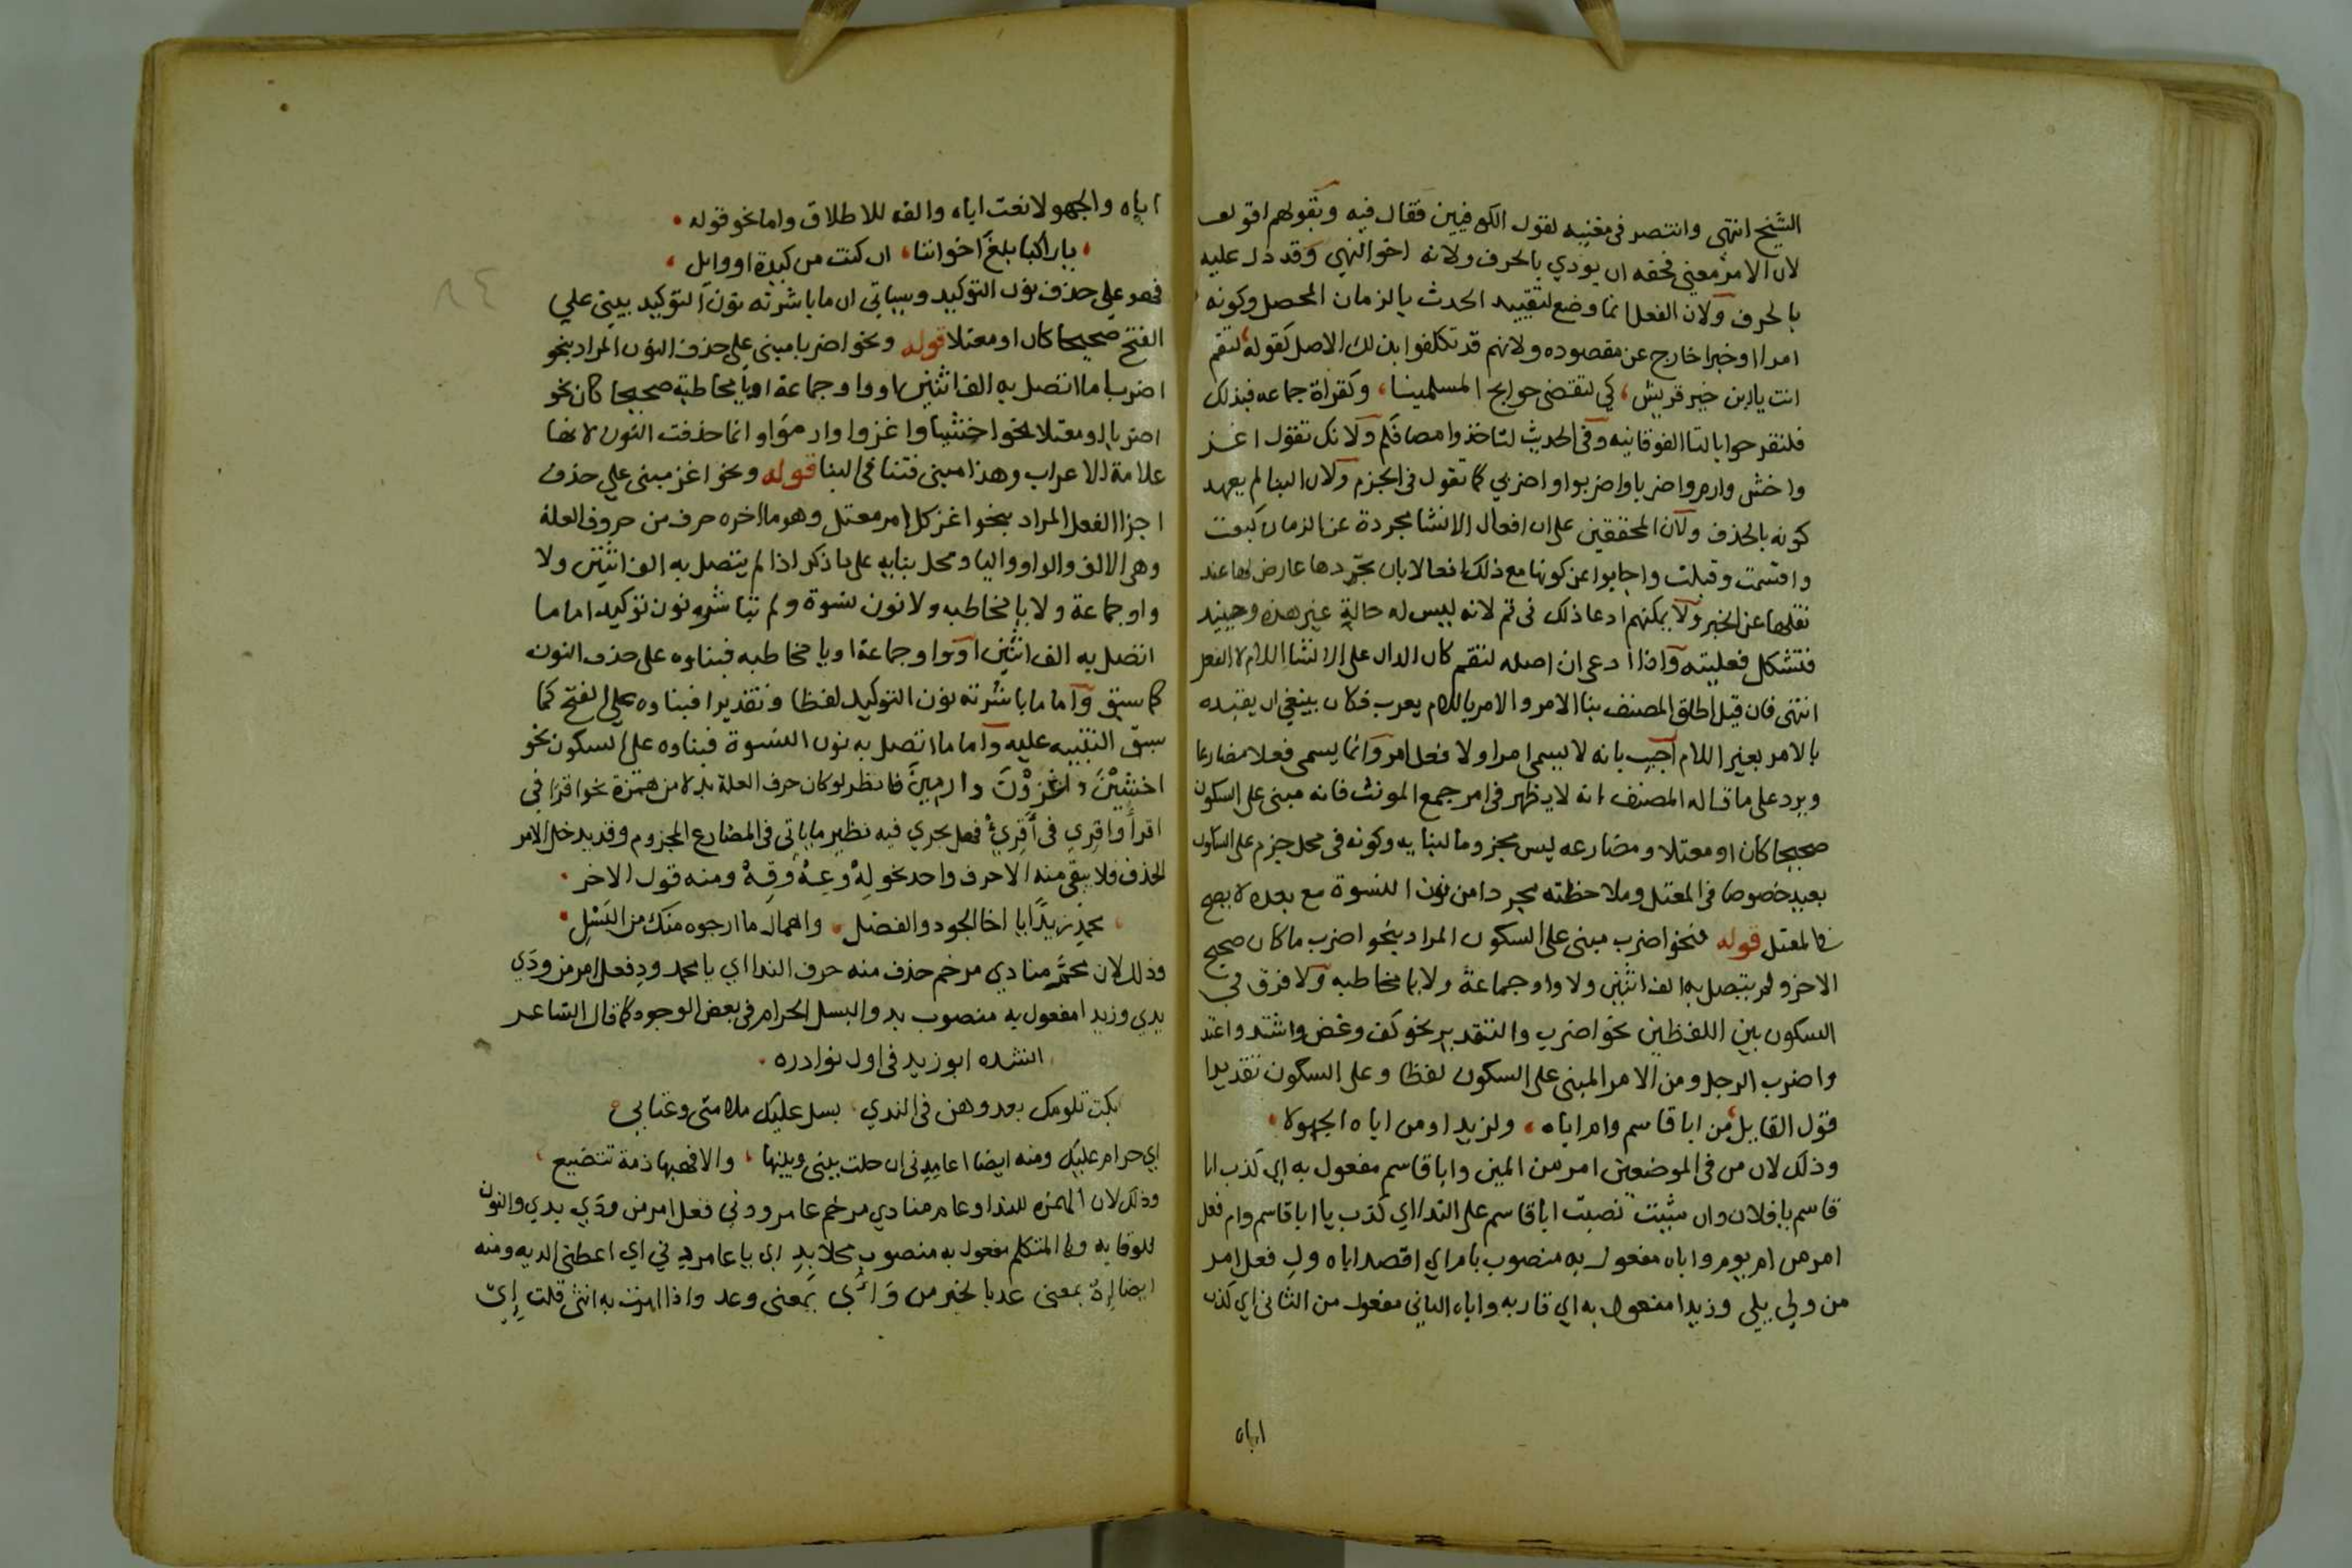 الشيخ انتهى وانتصر في مغنيه لقول الكوفيين فقال فيه وبقولهم اقول
لان الامر معنى فحقه ان يودي بالحرف ولانه اخو النهي وقد دل عليه
بالحرف ولان الفعل انما وضع لتقييد الحدث بالزمان المحصل وكونه
امرا او خبرا خارج عن مقصوده ولانهم قد تكلفوا بذلك الاصل كقوله لتقم
انت يا ابن خير قريش، كي لتقضى حوايج المسلمينا، وكقراة جماعه فبذلك
فلتفرحوا بالتا الفوقانيه وفي الحديث لتاخذوا مصافكم ولانك تقول اغز
واخش وارم واضربا واضربوا واضربي كما تقول في الجزم ولان البنا لم يعهد
كونه بالحذف ولان المحققين على ان افعال الانشا مجردة عن الزمان كبعت
واقسمت وقبلت واجابوا عن كونها مع ذلك افعالا بان تجردها عارض لها عند
نقلها عن الخبر ولا يمكنهم ادعا ذلك في قم لانه ليس له حالة غير هذه وحينيد
فتشكل فعليته واذا ادعى ان اصله لتقم كان الدال على الانشا اللام لا الفعل
انتهى فان قيل اطلق المصنف بنا الامر والامر باللام يعرب فكان ينبغي ان يقيده
بالامر بغير اللام اجيب بانه لا يسمى امرا ولا فعل امر وانما يسمى فعلا مضارعا
ويرد على ما قاله المصنف انه لا يظهر في امر جمع المونث فانه مبنى على السكون
صحيحا كان او معتلا ومضارعه ليس مجزوما لبنايه وكونه في محل جزم على السكون
بعيد خصوصا في المعتل وملاحظته مجردا من نون النسوة مع بعده لا يصح
في المعتل قوله فنحو اضرب مبنى على السكون المراد بنحو اضرب ما كان صحيح
الاخر ولم يتصل به الف اثنين ولا واو جماعة ولا يا مخاطبه ولا فرق في
السكون بين اللفظين نحو اضرب والتقدير نحو كف وغض واشتد واعتد
واضرب الرجل ومن الامر المبنى على السكون لفظا وعلى السكون تقديرا
قول القايل، من ابا قاسم وام اباه، ول زيدا ومن اباه الجهولا
وذلك لان من في الموضعين امر من المين وابا قاسم مفعول به اي كذب ابا
قاسم يا فلان وان شيت نصبت ابا قاسم على الندا اي كذب يا ابا قاسم وام فعل
امر من ام يوم واباه مفعول به منصوب بام اي اقصد اباه ول فعل امر
من ولي يلي وزيدا مفعول به اي قاربه واباه الثاني مفعول من الثاني اي كذب
اباه
اباه والجهولا نعت اباه والفه للاطلاق واما نحو قوله
يا راكبا بلغ اخواننا، ان كنت من كندة او وايل،
فهو على حذف نون التوكيد وسياتى ان ما باشرته نون التوكيد يبنى على
الفتح صحيحا كان او معتلا قوله ونحو اضربا مبنى على حذف النون المراد بنحو
اضربا ما اتصل به الف اثنين او واو جماعة او يا مخاطبة صحيحا كان نحو
اضربا او معتلا نحو اخشيا واغزوا وارموا وانما حذفت النون لانها
علامة الاعراب وهذا مبنى فتنافى البنا قوله ونحو اغز مبنى على حذف
اخر الفعل المراد بنحو اغز كل امر معتل وهو ما اخره حرف من حروف العلة
وهى الالف والواو واليا ومحل بنايه على ما ذكر اذا لم يتصل به الف اثنين ولا
واو جماعة ولا يا مخاطبه ولا نون نسوة ولم تباشره نون توكيد اما ما
اتصل به الف اثنين او واو جماعة او يا مخاطبه فبناوه على حذف النون
كما سبق واما ما باشرته نون التوكيد لفظا وتقديرا فبناوه على الفتح كما
سبق التنبيه عليه واما ما اتصل به نون النسوة فبناوه على السكون نحو
اخشين واغزون وارمين فانظر لو كان حرف العلة بدلا من همزة نحو اقرا في
اقرأ واقري في أقرئ فهل يجري فيه نظير ما ياتى في المضارع المجزوم وقد يدخل الامر
الحذف فلا يبقى منه الا حرف واحد نحو له وعه وقه ومنه قول الاخر
محم د زيدا يا اخا الجود والفضل، واهمال ما ارجوه منك من البسل
وذلك لان محم منادي مرخم حذف منه حرف الندا اي يا محمد ود فعل امر من ودي
يدي وزيدا مفعول به منصوب بد والبسل الحرام في بعض الوجوه كما قال الشاعر
انشده ابو زيد في اول نوادره
بكرت تلومك بعد وهن في الندي، بسل عليك ملامتى وعتابي
اي حرام عليك ومنه ايضا اعام دنى ان حلت بينى وبينها، والا فهبها ذمة تتضيع،
وذلك لان الهمزة للندا وعام منادي مرخم عامر ودنى فعل امر من ودي يدي والنون
للوقايه ويا المتكلم مفعول به منصوب محلا بد اي يا عامر دنى اي اعطنى الديه ومنه
ايضا إه بمعنى عد بالخير من وأى بمعنى وعد واذا امرت به انثى قلت إي
٨٤